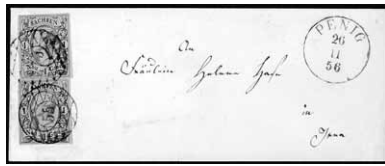 SACHSEN
PENIG
26
11
56
An
Fräulein Helene Hase
in
Jena